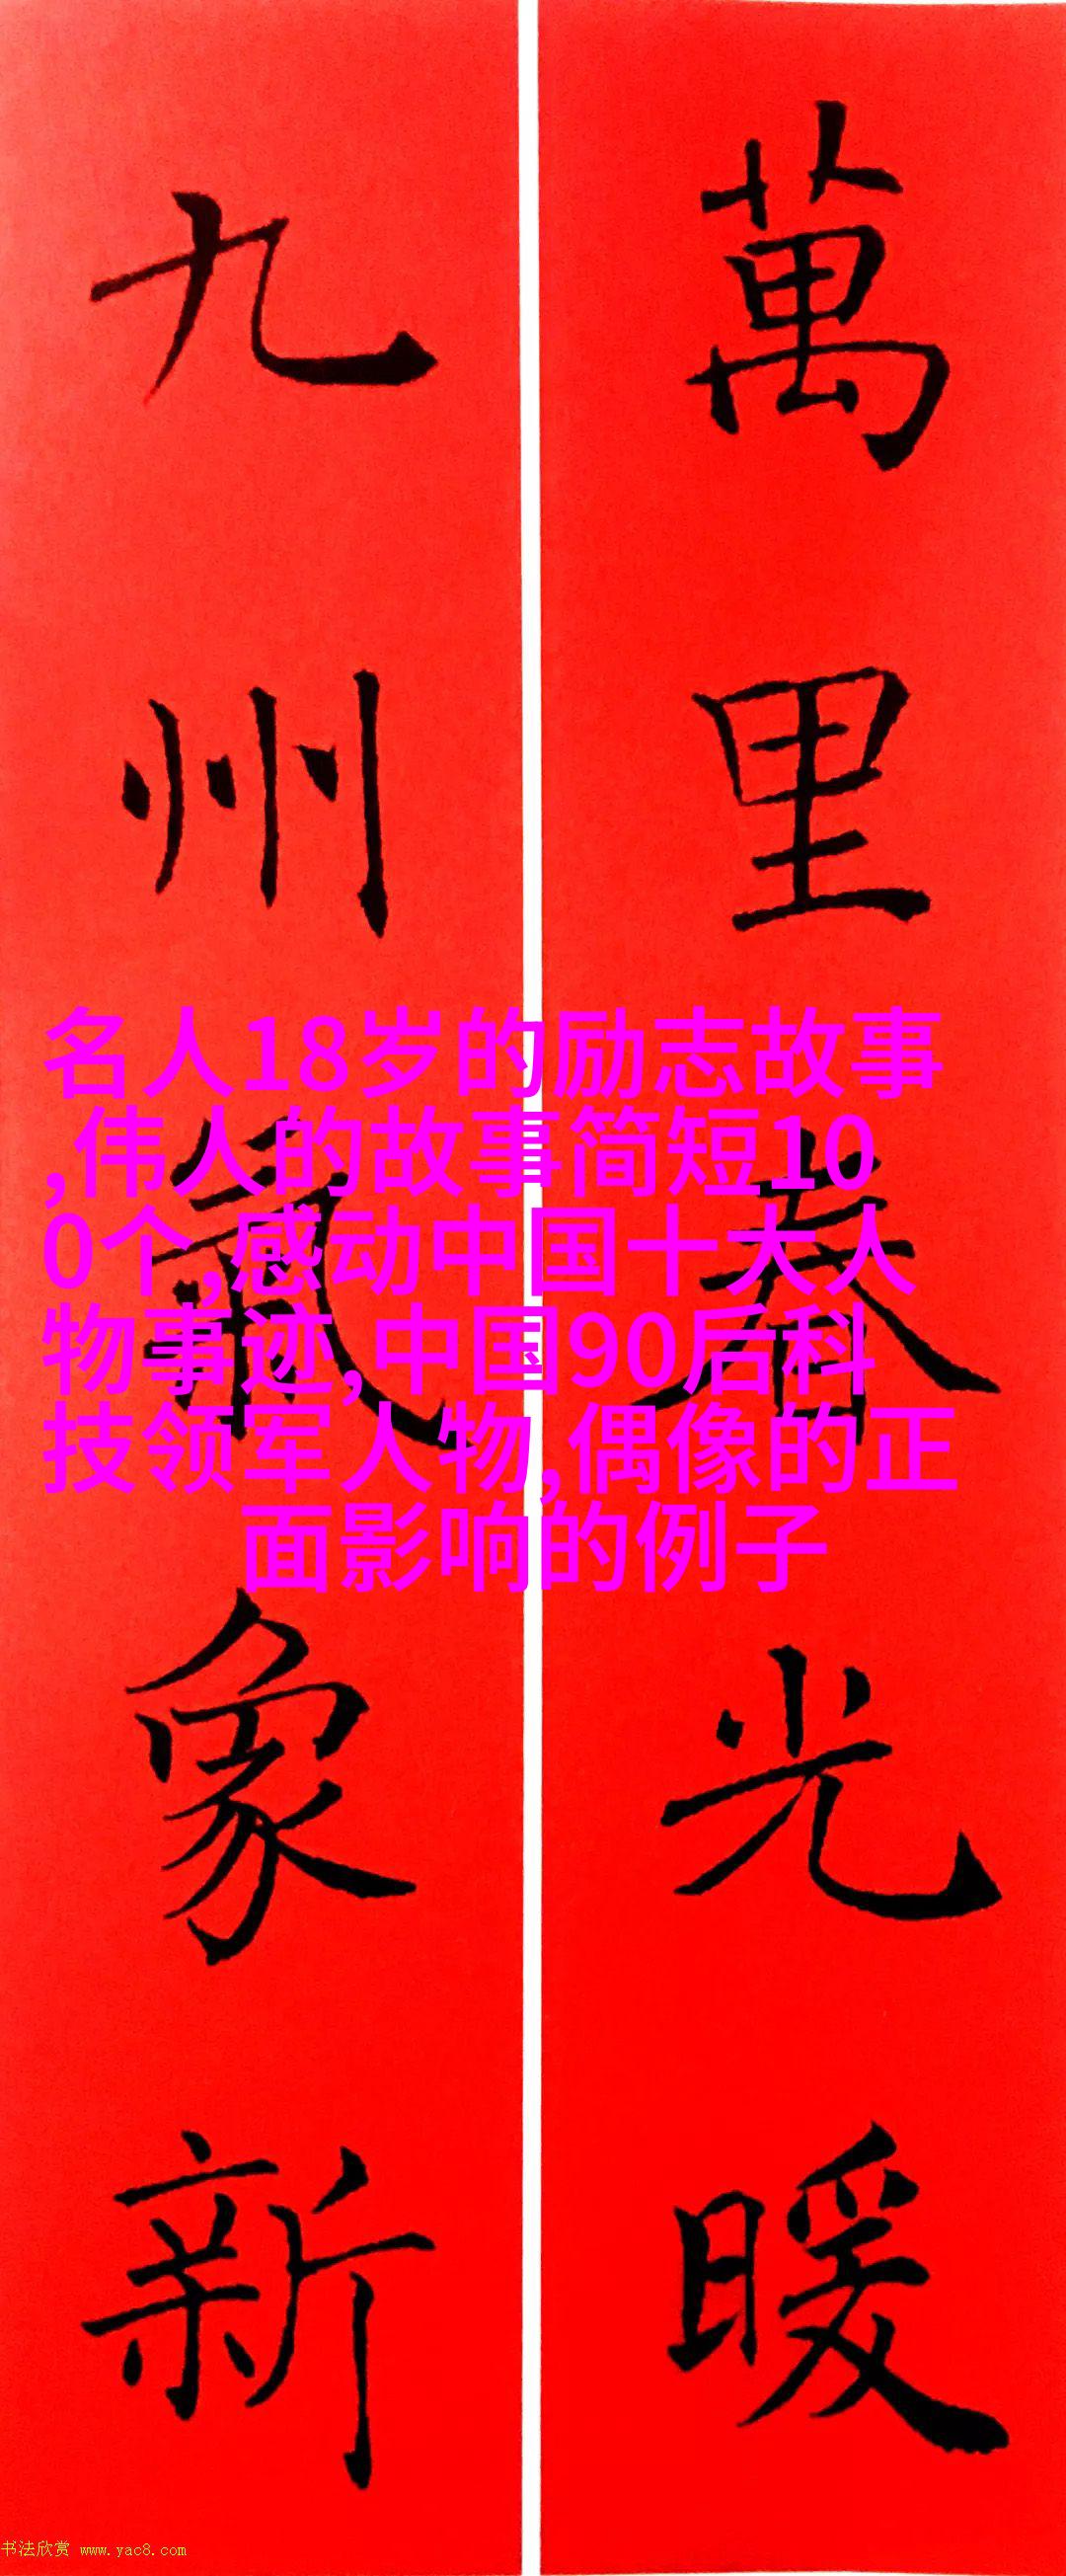 萬里春光暖
九州氣象新
名人18岁的励志故事
,伟人的故事简短10
0个,感动中国十大人
物事迹,中国90后科
技领军人物,偶像的正
面影响的例子
书法欣赏 www.yac8.com